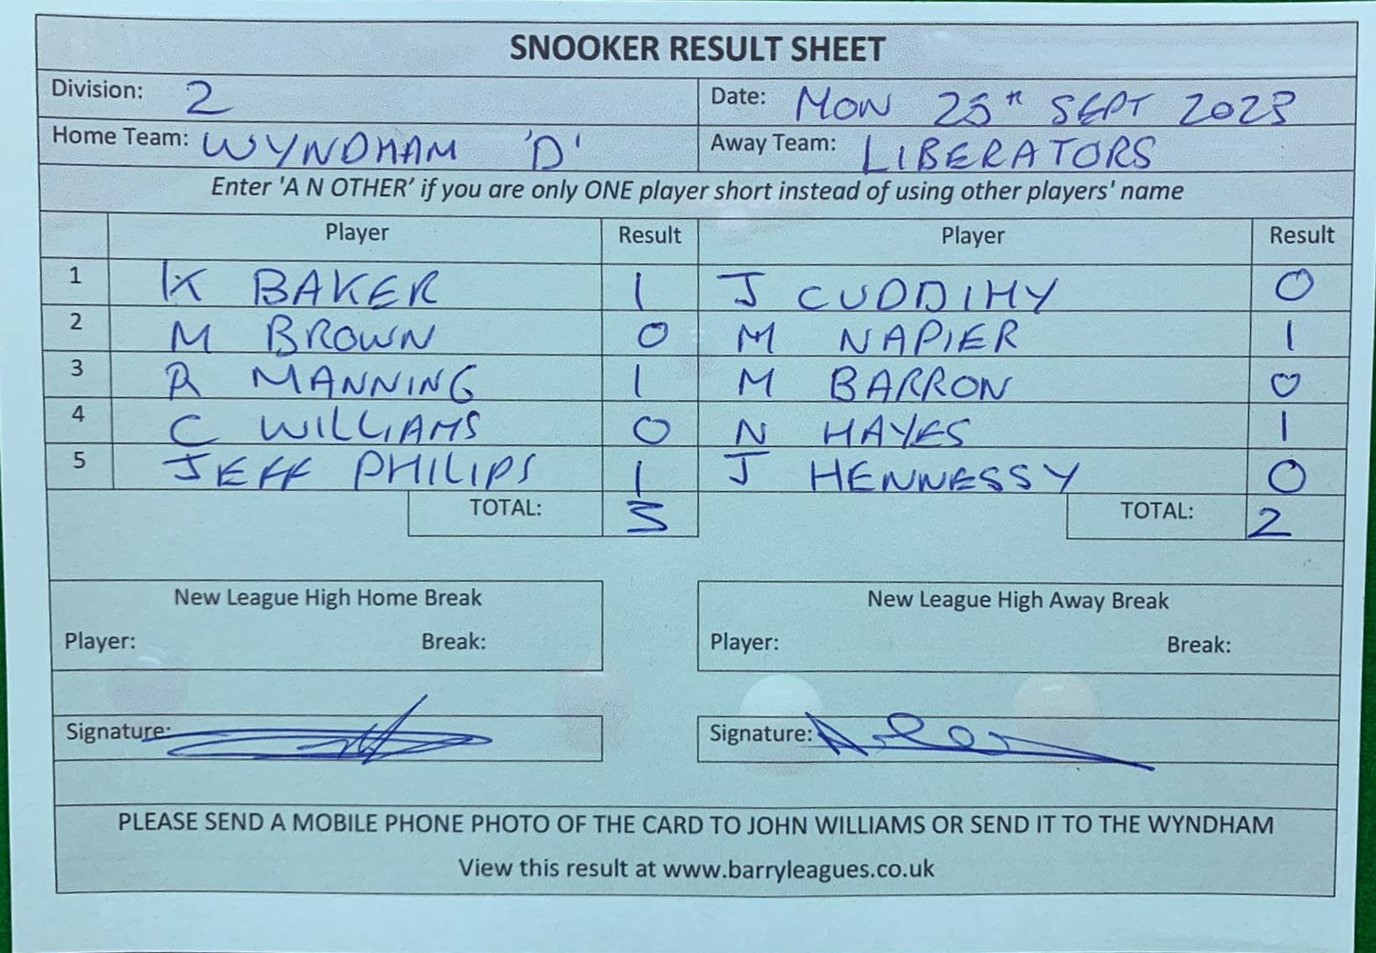 SNOOKER RESULT SHEET
Division: 2 Date: MON 25TH SEPT 2023
Home Team: WYNDHAM 'D' Away Team: LIBERATORS
Enter 'A N OTHER' if you are only ONE player short instead of using other players' name
Player Result Player Result
1 K BAKER 1 J CUDDIHY 0
2 M BROWN 0 M NAPIER 1
3 R MANNING 1 M BARRON 0
4 C WILLIAMS 0 N HAYES 1
5 JEFF PHILIPS 1 J HENNESSY 0
TOTAL: 3 TOTAL: 2
New League High Home Break New League High Away Break
Player: Break: Player: Break:
Signature: Signature:
PLEASE SEND A MOBILE PHONE PHOTO OF THE CARD TO JOHN WILLIAMS OR SEND IT TO THE WYNDHAM
View this result at www.barryleagues.co.uk